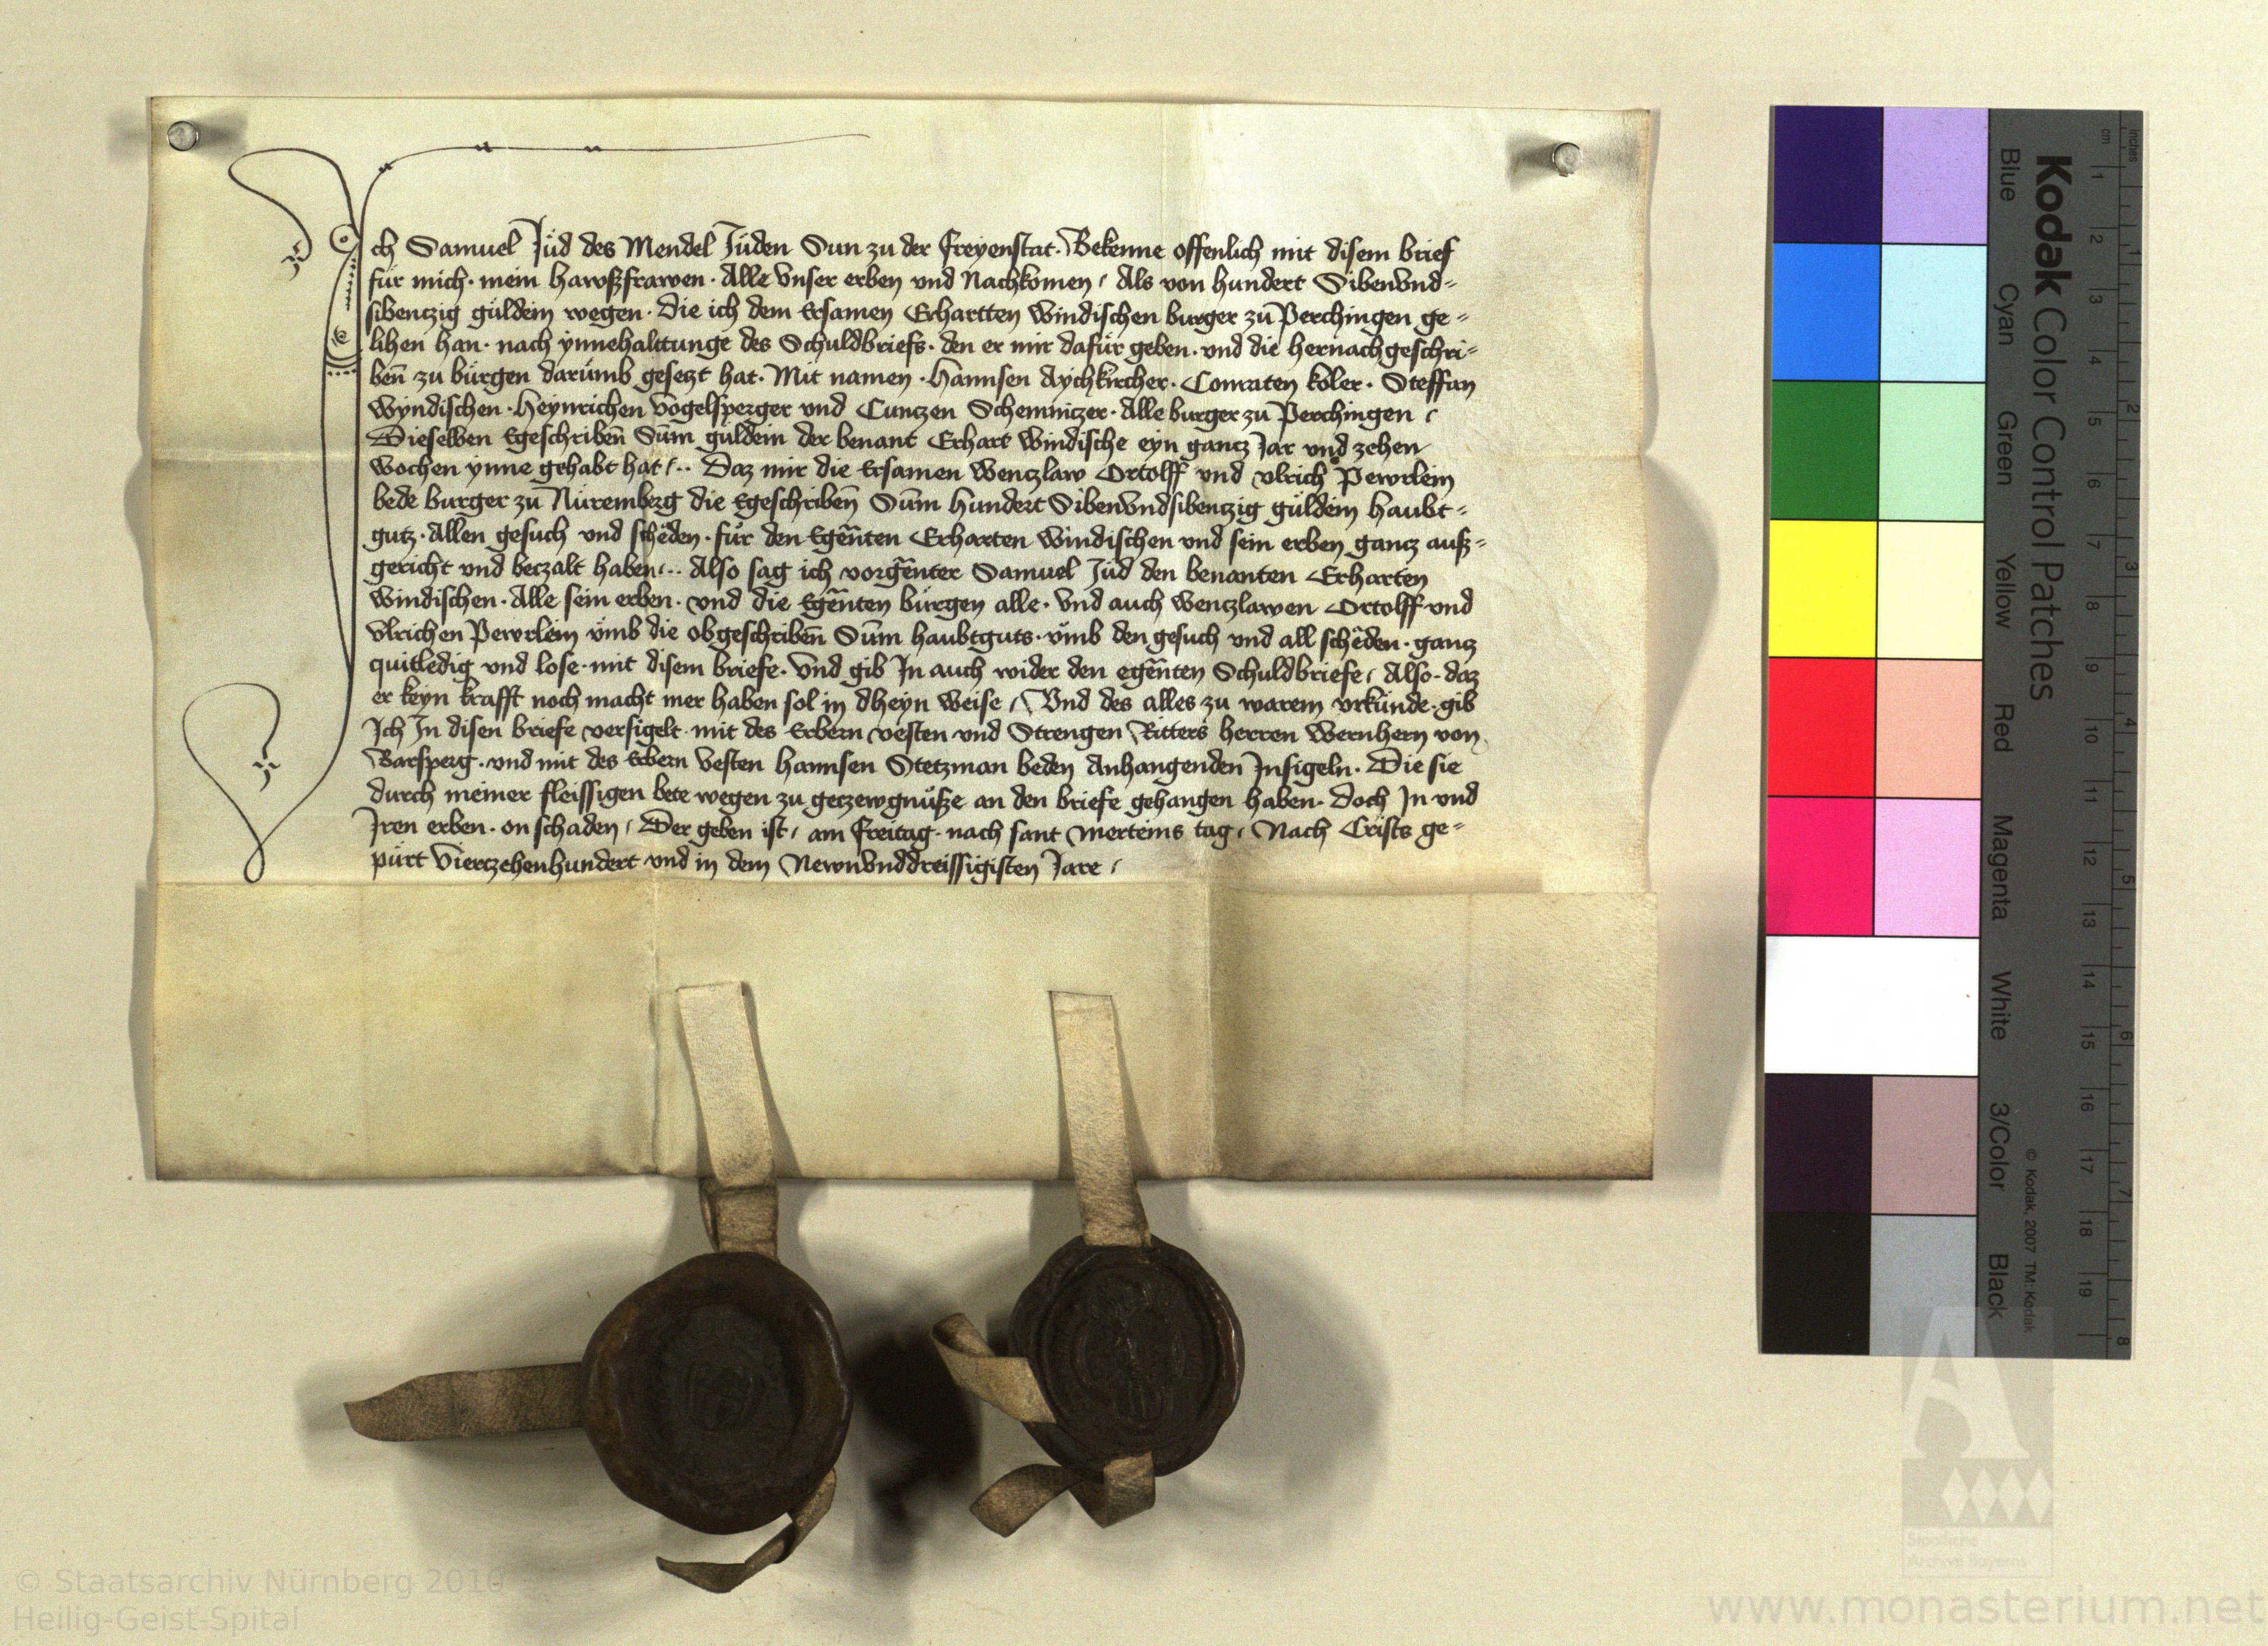 Ich Samuel Jüd des Mendel Jüden Sun zu der Freyenstat. Bekenne offenlich mit disem brief
für mich. mein hawsszfrawen. Alle Vnser erben vnd Nachkomen, Als von hundert SibenVnd=
sibenczig güldein wegen. Die ich dem Ersamen Erhartten Windischen burger zu Perchingen ge=
lihen han. nach ynnehalttunge des Schuldbriefs. den er mir dafür geben. vnd die hernachgeschri=
ben̄ zu bürgen darümb geseczt hat. Mit namen. Hannsen Aychkircher. Conraten koler. Steffan
Wyndischen. Heynrichen Vogelsperger vnd Cunczen Schemniczer. Alle burger zu Perchingen,
Dieselben Egeschriben̄ Sūm güldein der benant Erhart Windische eyn gancz Jar vnd zehen
wochen ynne gehabt hat,.. Daz mir die Ersamen Wenczlaw Ortolff vnd vlrich Pewrlein
bede burger zu Nüremberg die Egeschriben̄ Sūm hundert SibenVndsibenczig güldein haubt=
gutz. Allen gesuch vnd schëden. für den Egēnten Erharten Windischen vnd sein erben gancz ausz=
gericht vnd beczalt haben,.. Also sag ich vorgēnter Samuel Jüd den benanten Erharten
Windischen. Alle sein erben. vnd die Egēnten bürgen alle. Vnd auch Wenczlawen Ortolff vnd
Vlrichen Pewrlein vmb die obgeschriben̄ Sūm haubtguts. vmb den gesuch vnd all schëden. gancz
quitledig vnd lose. mit disem briefe. Vnd gib Jn auch wider den egēnten Schuldbriefe, Also. daz
er keyn krafft noch macht mer haben sol in dheyn weise, Vnd des alles zu warem vrkünde. gib
Jch Jn disen briefe versigelt. mit des Erbern vesten vnd Strengen Ritters herren Wernhern von
Barsperg. vnd mit des Erbern Vesten Hannsen Stetzman beden Anhangenden Jnsigeln. Die sie
durch meiner fleissigen bete wegen zu geczewgnüsze an den briefe gehangen haben. Doch Jn vnd
Jren erben. on schaden, Der geben ist, am Freitag. nach sant Merteins tag, Nach Crists ge=
pürt Vierczehenhundert vnd in dem NewnVnddreissigisten Jare,
Kodak Color Control Patches
© Kodak, 2007 TM: Kodak
Blue Cyan Green Yellow Red Magenta White 3/Color Black
cm 1 2 3 4 5 6 7 8 9 10 11 12 13 14 15 16 17 18 19
inches 1 2 3 4 5 6 7 8
A
Staatliche
Archive Bayerns
© Staatsarchiv Nürnberg 2010
Heilig-Geist-Spital
www.monasterium.net